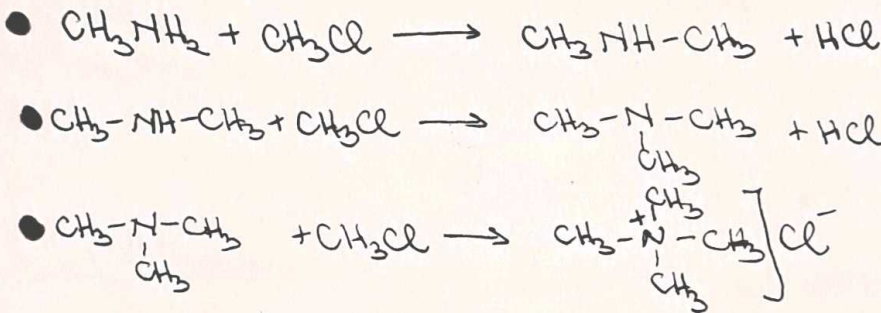 ● CH₃NH₂ + CH₃Cl ⟶ CH₃NH-CH₃ + HCl
● CH₃-NH-CH₃ + CH₃Cl ⟶ CH₃-N-CH₃ + HCl
CH₃
CH₃
● CH₃-N-CH₃ + CH₃Cl ⟶ CH₃-N⁺-CH₃] Cl⁻
CH₃ CH₃